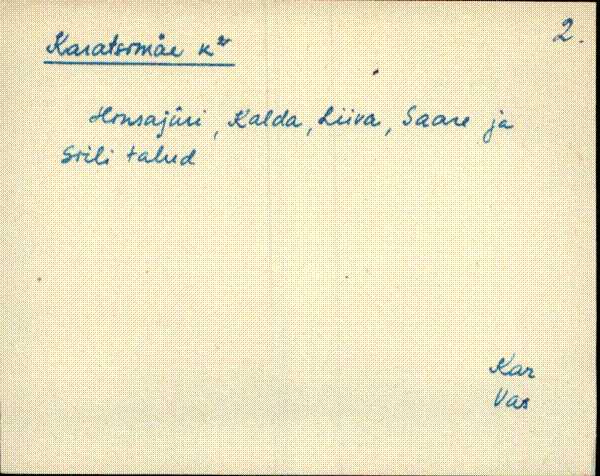 2.
Karatsmäe kᵃ
Honsajüri, Kalda, Liiva, Saare ja
Srili talud
Kar
Vas